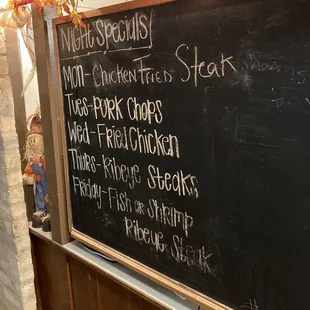 Night Specials!
Mon - Chicken Fried Steak
Tues - Pork Chops
Wed - Fried Chicken
Thurs - Ribeye Steaks
Friday - Fish or Shrimp
Ribeye Steak